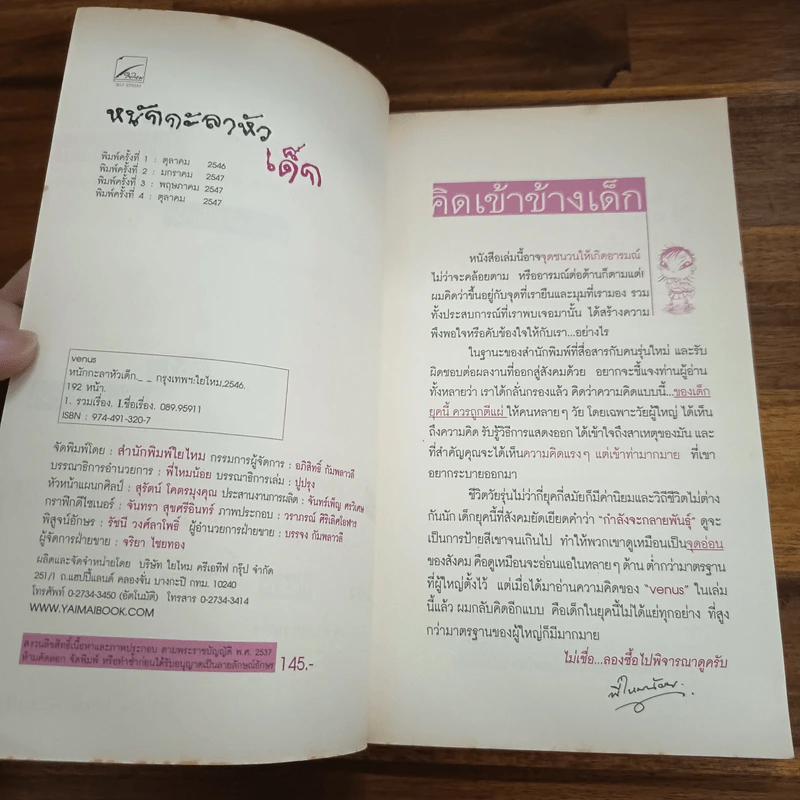 หนักกะลาหัว
เด็ก
พิมพ์ครั้งที่ 1 : ตุลาคม 2546
พิมพ์ครั้งที่ 2 : มกราคม 2547
พิมพ์ครั้งที่ 3 : พฤษภาคม 2547
พิมพ์ครั้งที่ 4 : ตุลาคม 2547
venus
หนักกะลาหัวเด็ก._ _ กรุงเทพฯ:ใยไหม,2546.
192 หน้า.
1. รวมเรื่อง. I.ชื่อเรื่อง. 089.95911
ISBN : 974-491-320-7
จัดพิมพ์โดย : สำนักพิมพ์ใยไหม กรรมการผู้จัดการ : อภิสิทธิ์ กัมพลาวลี
บรรณาธิการอำนวยการ : พี่ไหมน้อย บรรณาธิการเล่ม : ปูปรุง
หัวหน้าแผนกศิลป์ : สุรัตน์ โคตรมุงคุณ ประสานงานการผลิต : จันทร์เพ็ญ ศรวิเศษ
กราฟิกดีไซเนอร์ : จันทรา สุขศรีอินทร์ ภาพประกอบ : วราภรณ์ ศิริเลิศโอฬาร
พิสูจน์อักษร : รัชนี วงศ์ลาโพธิ์ ผู้อำนวยการฝ่ายขาย : บรรจง กัมพลาวลี
ผู้จัดการฝ่ายขาย : จริยา ไชยทอง
ผลิตและจัดจำหน่ายโดย บริษัท ใยไหม ครีเอทีฟ กรุ๊ป จำกัด
251/1 ถ.แฮปปี้แลนด์ คลองจั่น บางกะปิ กทม. 10240
โทรศัพท์ 0-2734-3450 (อัตโนมัติ) โทรสาร 0-2734-3414
WWW.YAIMAIBOOK.COM
สงวนลิขสิทธิ์เนื้อหาและภาพประกอบ ตามพระราชบัญญัติ พ.ศ. 2537
ห้ามคัดลอก จัดพิมพ์ หรือทำซ้ำก่อนได้รับอนุญาตเป็นลายลักษณ์อักษร
145.-
คิดเข้าข้างเด็ก
หนังสือเล่มนี้อาจจุดชนวนให้เกิดอารมณ์
ไม่ว่าจะคล้อยตาม หรืออารมณ์ต่อต้านก็ตามแต่!
ผมคิดว่าขึ้นอยู่กับจุดที่เรายืนและมุมที่เรามอง รวม
ทั้งประสบการณ์ที่เราพบเจอมานั้น ได้สร้างความ
พึงพอใจหรือคับข้องใจให้กับเรา...อย่างไร
ในฐานะของสำนักพิมพ์ที่สื่อสารกับคนรุ่นใหม่ และรับ
ผิดชอบต่อผลงานที่ออกสู่สังคมด้วย อยากจะชี้แจงท่านผู้อ่าน
ทั้งหลายว่า เราได้กลั่นกรองแล้ว คิดว่าความคิดแบบนี้...ของเด็ก
ยุคนี้ ควรถูกตีแผ่ ให้คนหลายๆ วัย โดยเฉพาะวัยผู้ใหญ่ ได้เห็น
ถึงความคิด รับรู้วิธีการแสดงออก ได้เข้าใจถึงสาเหตุของมัน และ
ที่สำคัญคุณจะได้เห็นความคิดแรงๆ แต่เข้าท่ามากมาย ที่เขา
อยากระบายออกมา
ชีวิตวัยรุ่นไม่ว่ากี่ยุคกี่สมัยก็มีค่านิยมและวิถีชีวิตไม่ต่าง
กันนัก เด็กยุคนี้ที่สังคมยัดเยียดคำว่า “กำลังจะกลายพันธุ์” ดูจะ
เป็นการป้ายสีเขาจนเกินไป ทำให้พวกเขาดูเหมือนเป็นจุดอ่อน
ของสังคม คือดูเหมือนจะอ่อนแอในหลายๆ ด้าน ต่ำกว่ามาตรฐาน
ที่ผู้ใหญ่ตั้งไว้ แต่เมื่อได้มาอ่านความคิดของ “venus” ในเล่ม
นี้แล้ว ผมกลับคิดอีกแบบ คือเด็กในยุคนี้ไม่ได้แย่ทุกอย่าง ที่สูง
กว่ามาตรฐานของผู้ใหญ่ก็มีมากมาย
ไม่เชื่อ...ลองซื้อไปพิจารณาดูครับ
พี่ไหมน้อย.